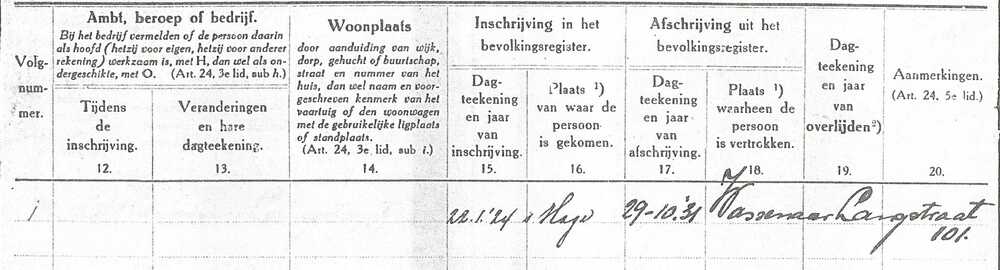 Volg-
num-
mer.
Ambt, beroep of bedrijf.
Bij het bedrijf vermelden of de persoon daarin
als hoofd (hetzij voor eigen, hetzij voor anderer
rekening) werkzaam is, met H, dan wel als on-
dergeschikte, met O. (Art. 24, 3e lid, sub h.)
Tijdens
de
inschrijving.
12.
Veranderingen
en hare
dagteekening.
13.
Woonplaats
door aanduiding van wijk,
dorp, gehucht of buurtschap,
straat en nummer van het
huis, dan wel naam en voor-
geschreven kenmerk van het
vaartuig of den woonwagen
met de gebruikelijke ligplaats
of standplaats.
(Art. 24, 3e lid, sub i.)
14.
Inschrijving in het
bevolkingsregister.
Dag-
teekening
en jaar
van
inschrijving.
15.
Plaats ¹)
van waar de
persoon
is gekomen.
16.
Afschrijving uit het
bevolkingsregister.
Dag-
teekening
en jaar
van
afschrijving.
17.
Plaats ¹)
waarheen de
persoon
is vertrokken.
18.
Dag-
teekening
en jaar
van
overlijden²)
19.
Aanmerkingen.
(Art. 24. 5e lid.)
20.
1 22.1.'24 s Hage 29-10.'31 Wassenaar Langstraat
101.